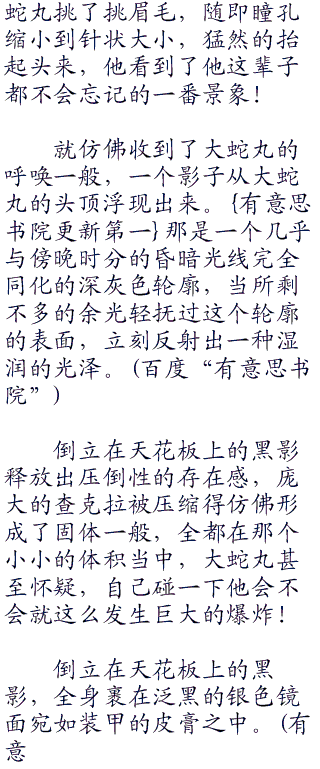 蛇丸挑了挑眉毛，随即瞳孔
缩小到针状大小，猛然的抬
起头来，他看到了他这辈子
都不会忘记的一番景象！
就仿佛收到了大蛇丸的
呼唤一般，一个影子从大蛇
丸的头顶浮现出来。{有意思
书院更新第一}那是一个几乎
与傍晚时分的昏暗光线完全
同化的深灰色轮廓，当所剩
不多的余光轻抚过这个轮廓
的表面，立刻反射出一种湿
润的光泽。(百度“有意思书
院”)
倒立在天花板上的黑影
释放出压倒性的存在感，庞
大的查克拉被压缩得仿佛形
成了固体一般，全都在那个
小小的体积当中，大蛇丸甚
至怀疑，自己碰一下他会不
会就这么发生巨大的爆炸！
倒立在天花板上的黑
影，全身裹在泛黑的银色镜
面宛如装甲的皮膏之中。(有
意